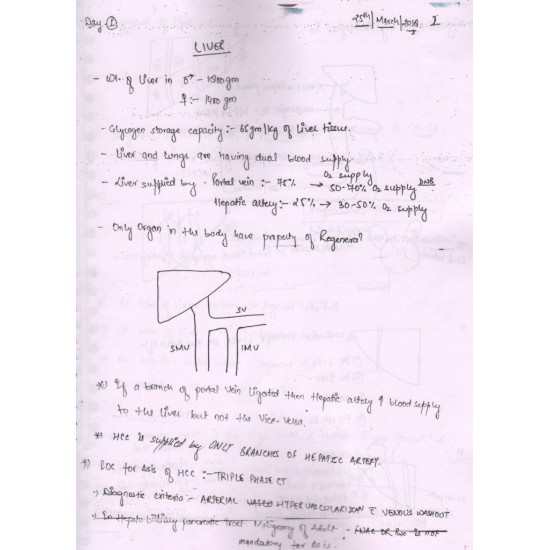 Day 1
25th March/2018 I
LIVER
- Wt. of liver in ♂ - 1800 gm
♀ :- 1400 gm
- Glycogen storage capacity :- 65 gm/kg of liver tissue.
- Liver and lungs are having dual blood supply
O2 supply
- Liver supplied by - Portal vein :- 75% → 50-70% O2 supply DNB
Hepatic artery :- 25% → 30-50% O2 supply
- Only Organ in the body have property of Regeneran
SV
SMV IMV
*) If a branch of portal vein ligated then Hepatic artery ↑ blood supply
to the liver but not the Vice-versa.
*) HCC is supplied by ONLY BRANCHES OF HEPATIC ARTERY.
*) IOC for Δsis of HCC :- TRIPLE PHASE CT
•) Diagnostic criteria :- ARTERIAL HYPERVASCULARIZAN c̄ VENOUS WASHOUT
•) In Hepato billiary pancreatic tract Malignancy of Adult - FNAC OR Bx is not
mandatory for Δsis.